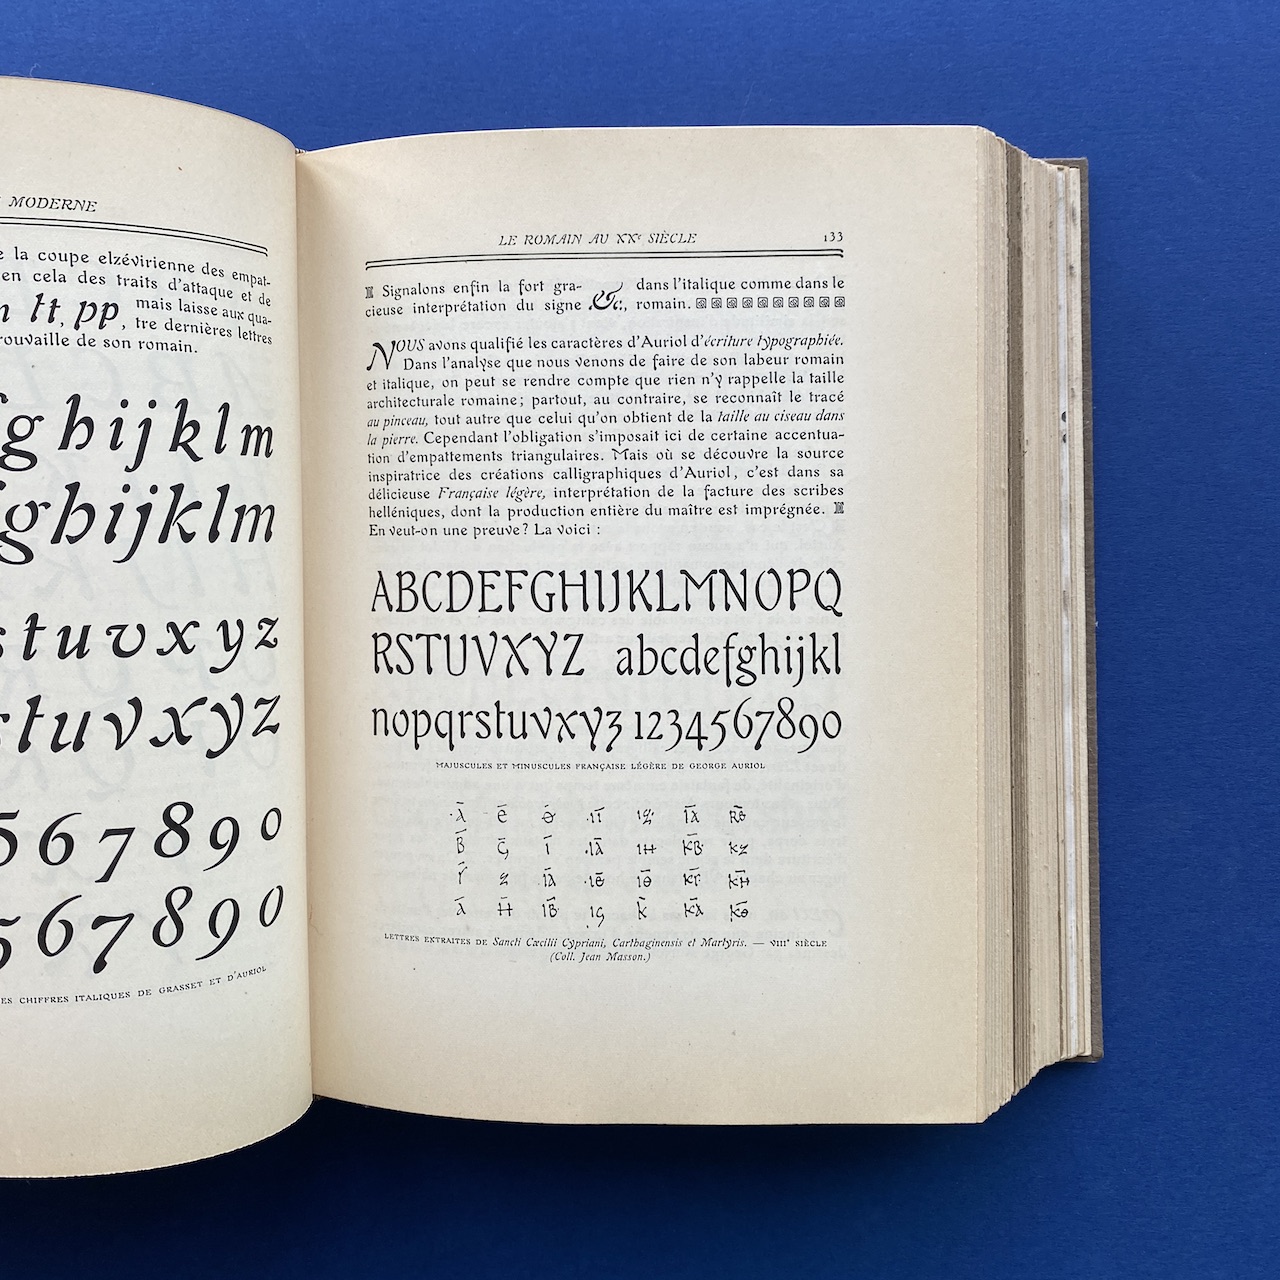 MODERNE
e la coupe elzévirienne des empat-
en cela des traits d'attaque et de
tt, pp, mais laisse aux qua-
tre dernières lettres
rouvaille de son romain.
fghijklm
ghijklm
stuvxyz
stuvxyz
567890
567890
ES CHIFFRES ITALIQUES DE GRASSET ET D'AURIOL
LE ROMAIN AU XXe SIÈCLE 133
Signalons enfin la fort gra- dans l'italique comme dans le
cieuse interprétation du signe &, romain.
NOUS avons qualifié les caractères d'Auriol d'écriture typographiée.
Dans l'analyse que nous venons de faire de son labeur romain
et italique, on peut se rendre compte que rien n'y rappelle la taille
architecturale romaine ; partout, au contraire, se reconnaît le tracé
au pinceau, tout autre que celui qu'on obtient de la taille au ciseau dans
la pierre. Cependant l'obligation s'imposait ici de certaine accentua-
tion d'empattements triangulaires. Mais où se découvre la source
inspiratrice des créations calligraphiques d'Auriol, c'est dans sa
délicieuse Française légère, interprétation de la facture des scribes
helléniques, dont la production entière du maître est imprégnée.
En veut-on une preuve ? La voici :
ABCDEFGHIJKLMNOPQ
RSTUVXYZ abcdefghijkl
nopqrstuvxyz 1234567890
MAJUSCULES ET MINUSCULES FRANÇAISE LÉGÈRE DE GEORGE AURIOL
LETTRES EXTRAITES DE Sancti Cæcilii Cypriani, Carthaginensis et Martyris. — VIIIe SIÈCLE
(Coll. Jean Masson.)